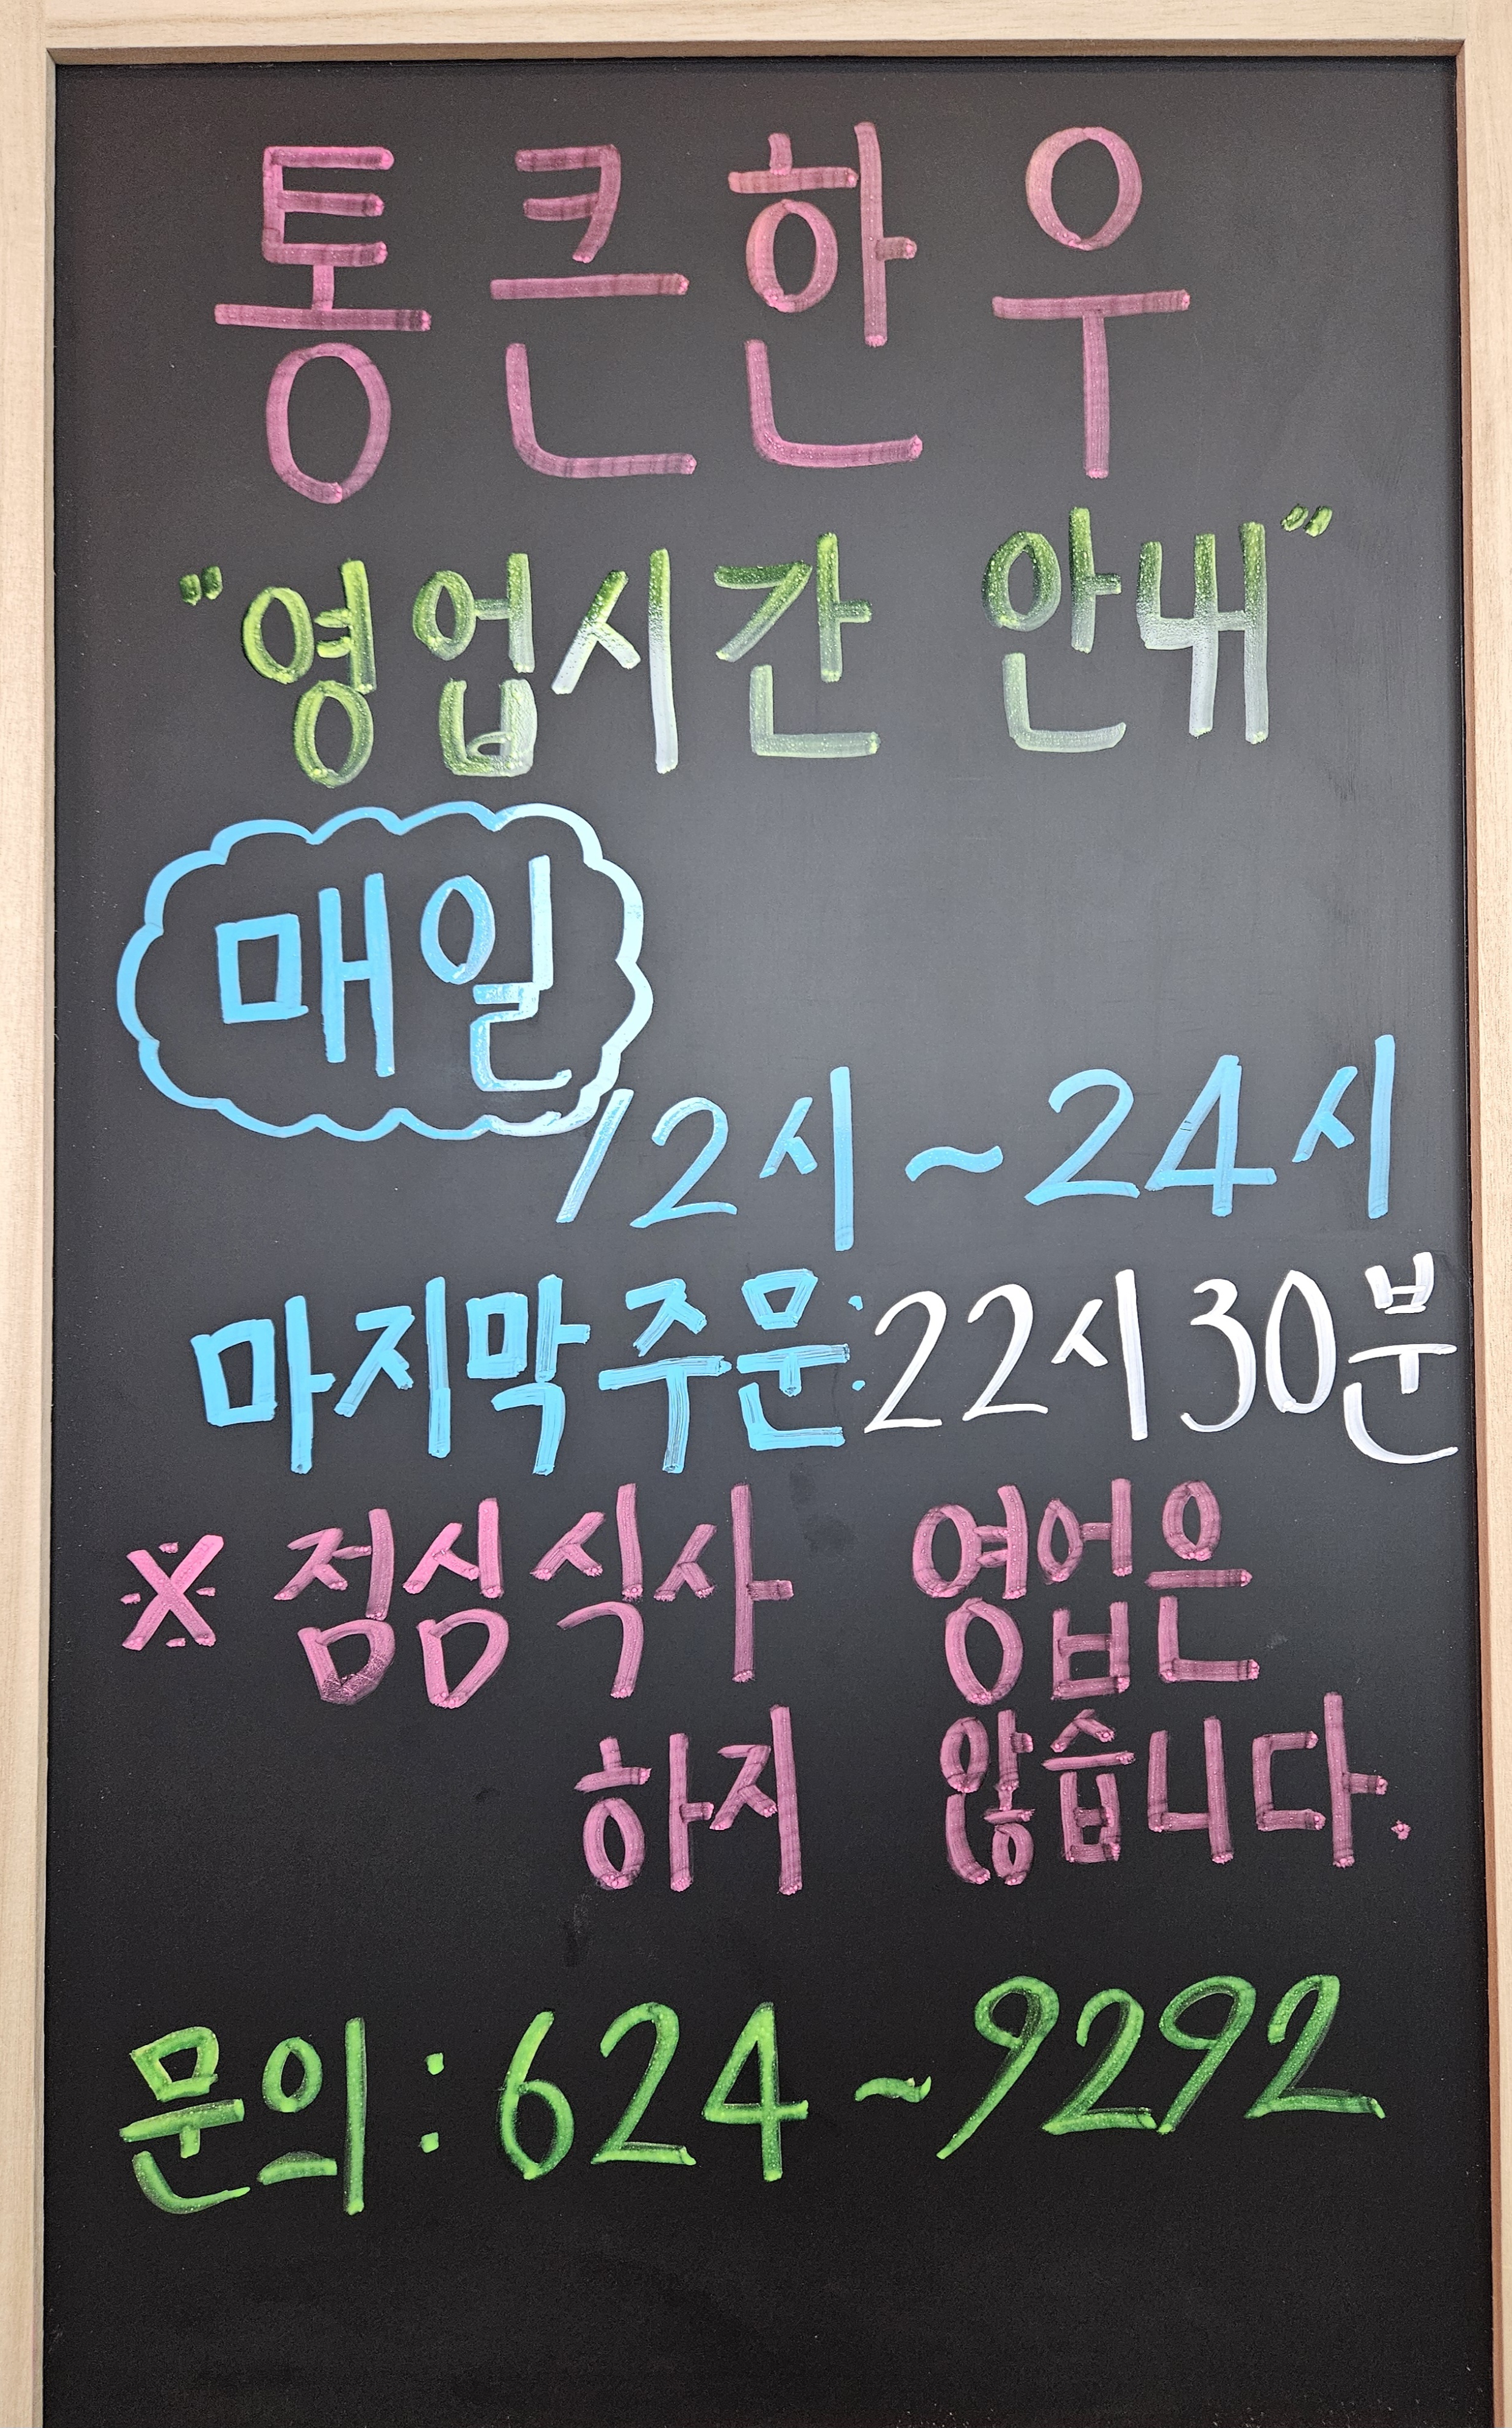 통큰한우
"영업시간 안내"
매일
12시~24시
마지막주문:22시30분
※ 점심식사 영업은
하지 않습니다.
문의:624~9292